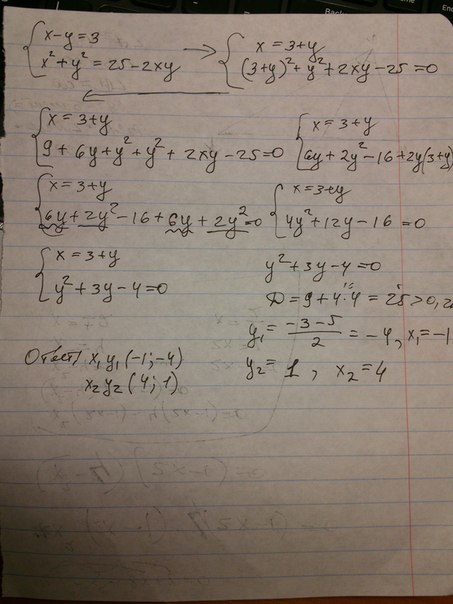 { x-y=3 → { x=3+y
{ x²+y²=25-2xy { (3+y)²+y²+2xy-25=0
{ x=3+y { x=3+y
{ 9+6y+y²+y²+2xy-25=0 { 6y+2y²-16+2y(3+y)
{ x=3+y { x=3+y
{ 6y+2y²-16+6y+2y²=0 { 4y²+12y-16=0
{ x=3+y
{ y²+3y-4=0
y²+3y-4=0
D=9+4·4=25>0, 2
y₁=(-3-5)/2=-4, x₁=-1
y₂=1, x₂=4
Ответ: x₁y₁(-1;-4)
x₂y₂(4;1)